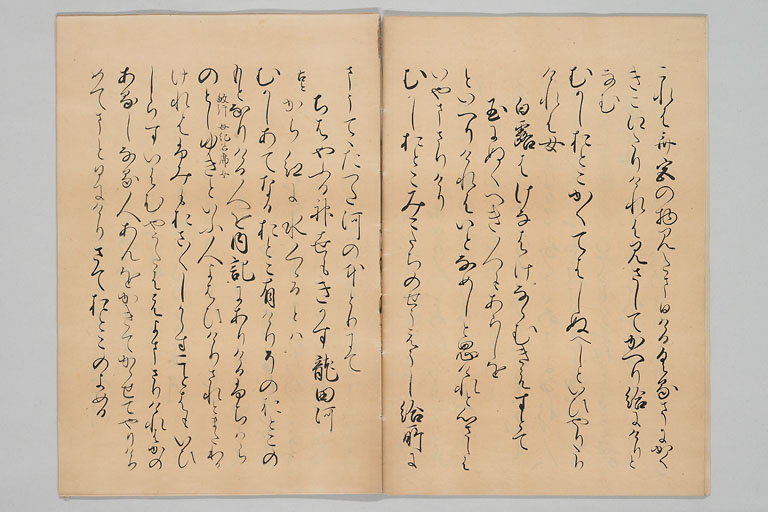 これは斎宮の物見たまひける車にかく
きこえたりけれは見さしてかへり給にけりと
なむ
むかしおとこかくてはしぬへしといひやりたり
けれは女
白露はけなはけなゝむきえすとて
玉にぬくへき人もあらしを
といへりけれはいとなめしと思けれと心さしは
いやまさりけり
むかしおとこみこたちのせうえうし給所に
まうてゝたつた河のほとりにて
ちはやふる神世もきかす龍田河
から紅に水くゝるとは
むかしあてなるおとこ有けりそのおとこの
もとなりける人を内記にありけるふちはら
敏行 母紀名虎女
のとしゆきといふ人よはひけりされとまたわか
けれはふみもおさ〳〵しからすことはもいひ
しらすいはむやうたはよまさりけれはかの
あるしなる人あんをかきてかゝせてやりけり
めてまとひにけりさておとこのよめる